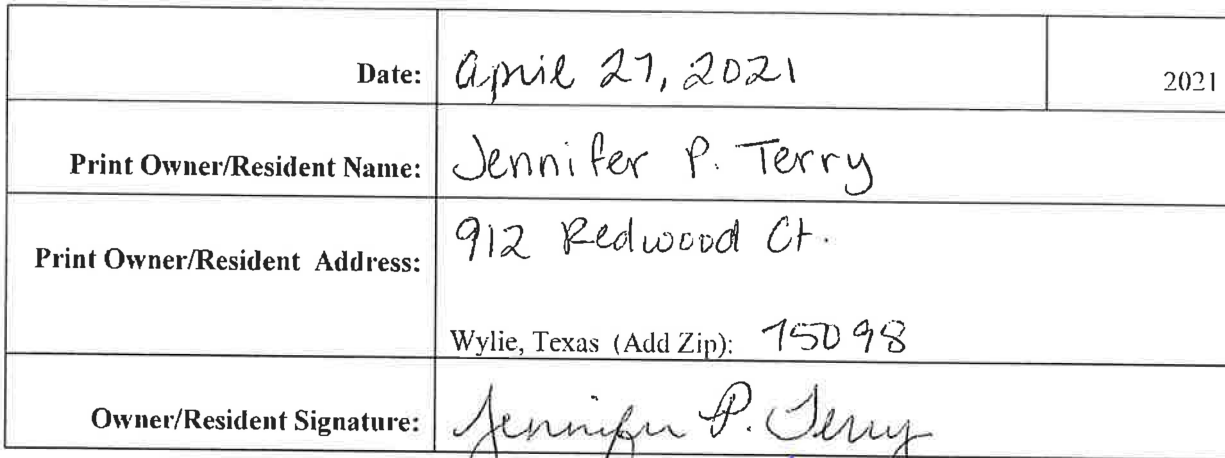 Date: April 27, 2021 2021
Print Owner/Resident Name: Jennifer P. Terry
Print Owner/Resident Address: 912 Redwood Ct.
Wylie, Texas (Add Zip): 75098
Owner/Resident Signature: Jennifer P. Terry